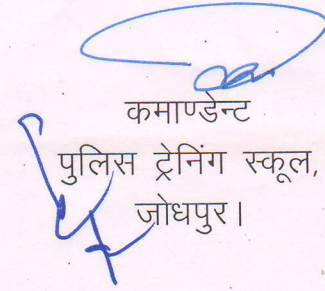 कमाण्डेन्ट
पुलिस ट्रेनिंग स्कूल,
जोधपुर।